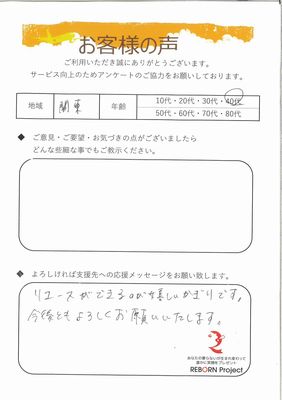 お客様の声
ご利用いただき誠にありがとうございます。
サービス向上のためアンケートのご協力をお願いしております。
地域 関東 年齢 10代・20代・30代・40代
50代・60代・70代・80代
◆ ご意見・ご要望・お気づきの点がございましたら
どんな些細な事でもご教示ください。
◆ よろしければ支援先への応援メッセージをお願い致します。
リユースができるのが嬉しいかぎりです。
今後ともよろしくお願いいたします。
あなたの要らないが生まれ変わって
誰かに笑顔をプレゼント
REBORN Project